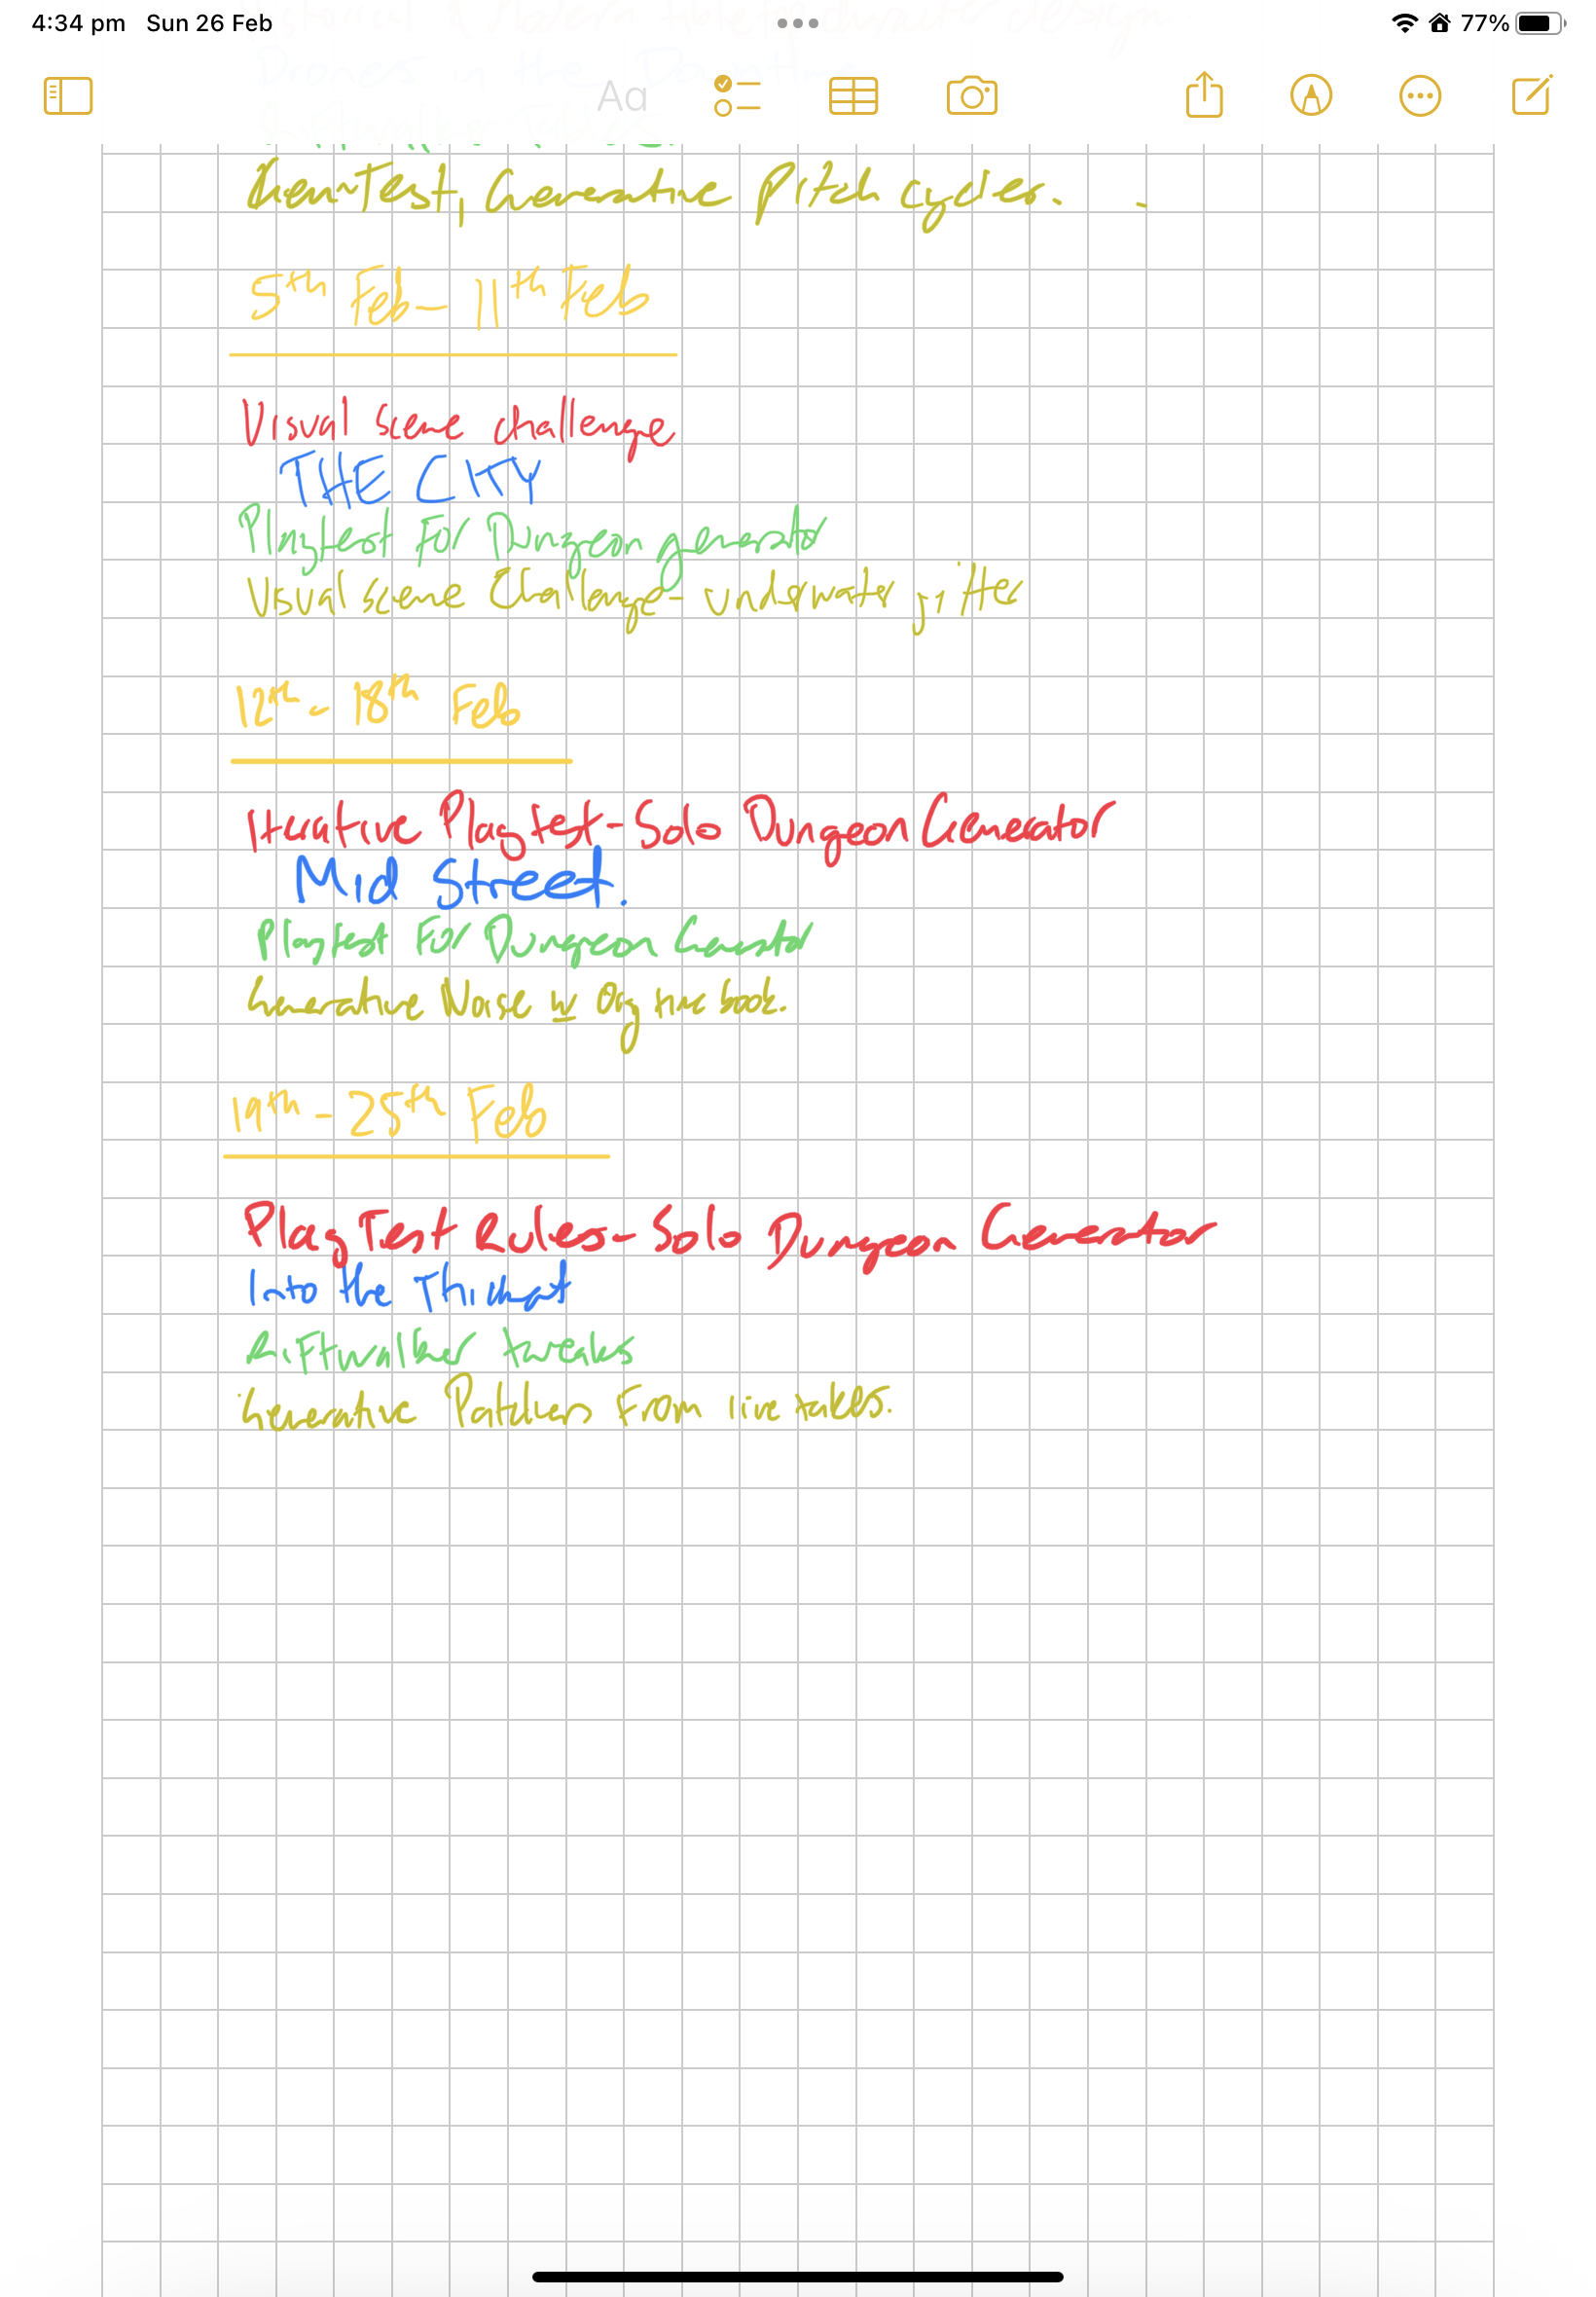 4:34 pm Sun 26 Feb
77%
Drones in the
Aa
Test, Generative Pitch cycles.
5th Feb - 11th Feb
Visual scene challenge
THE CITY
Playtest For Dungeon generator
Visual scene Challenge - underwater jitter
12th - 18th Feb
Iterative Playtest - Solo Dungeon Generator
Mid Street.
Playtest For Dungeon Generator
Generative Noise w book.
19th - 25th Feb
Play Test Rules - Solo Dungeon Generator
Into the
Riftwalker tweaks
Generative Patchers From live takes.